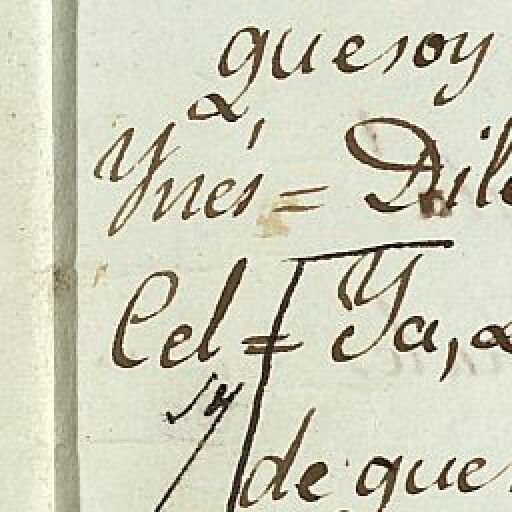 que soy
Ynés = Dile
Cel = Ya, a
sy
de que